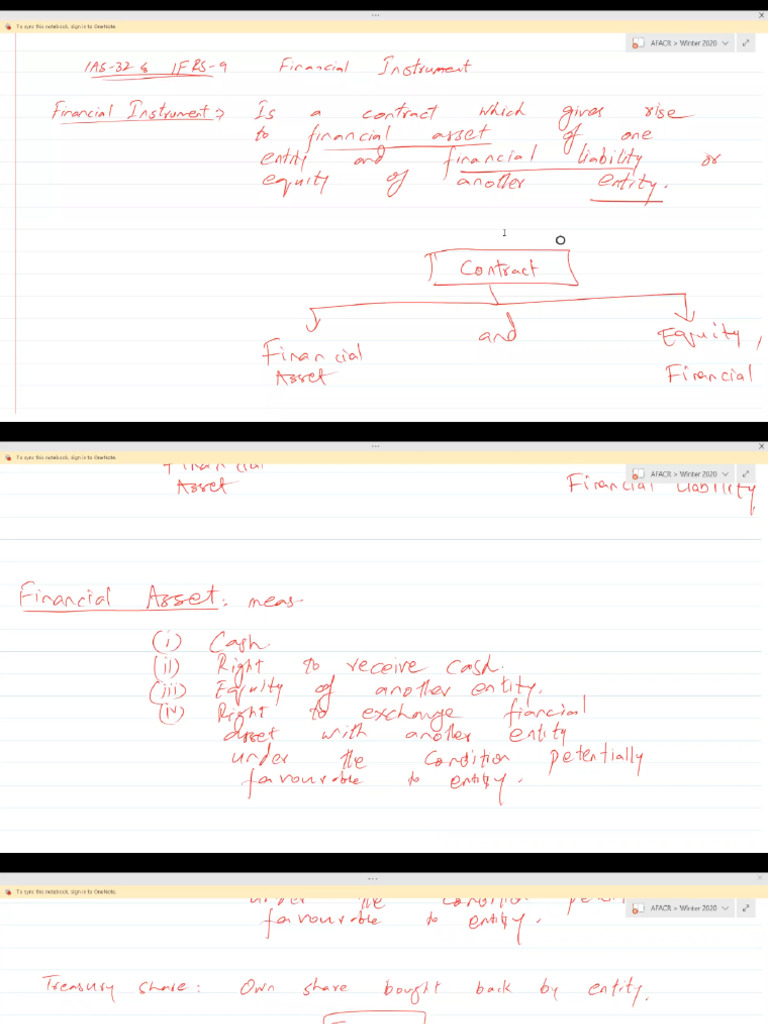 To sync this notebook, sign in to OneNote.
AFACR > Winter 2020
IAS-32 & IFRS-9 Financial Instrument
Financial Instrument → Is a contract which gives rise
to financial asset of one
entity and financial liability or
equity of another entity.
Contract
Financial and Equity,
Asset Financial
To sync this notebook, sign in to OneNote.
AFACR > Winter 2020
Financial
Asset Financial Liability
Financial Asset: meas
(i) Cash.
(ii) Right to receive cash.
(iii) Equity of another entity.
(iv) Right to exchange fiancial
asset with another entity
under the condition potentially
favourable to entity.
To sync this notebook, sign in to OneNote.
AFACR > Winter 2020
under the condition
favourable to entity.
Treasury share: Own share bought back by entity.